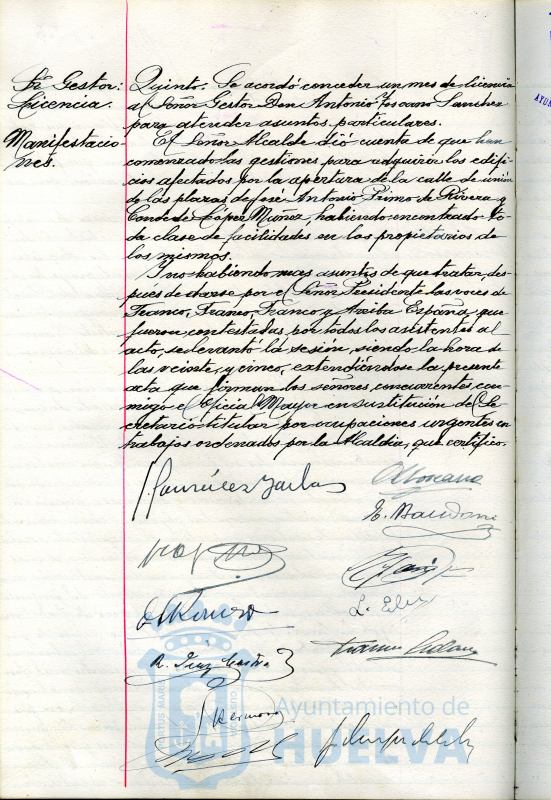 Sr. Gestor:
Licencia.
Manifestacio-
nes.
Quinto. Se acordó conceder un mes de licencia
al Señor Gestor Don Antonio Toscano Sanchez
para atender asuntos particulares.
El Señor Alcalde dió cuenta de que han
comenzado las gestiones para adquirir los edifi-
cios afectados por la apertura de la calle de unión
de las plazas de José Antonio Primo de Rivera y
Conde de Lopez Muñoz, habiendo encontrado to-
da clase de facilidades en los propietarios de
los mismos.
Y no habiendo mas asuntos de que tratar, des-
pués de darse por el Señor Presidente las voces de
Franco, Franco, Franco y Arriba España, que
fueron contestadas por todos los asistentes al
acto, se levantó la sesión, siendo la hora de
las veinte y cinco, extendiéndose la presente
acta que firman los señores concurrentes, con-
migo el Oficial Mayor en sustitución del Se-
cretario titular por ocupaciones urgentes en
trabajos ordenados por la Alcaldia, que certifico.
Ayuntamiento de
HUELVA